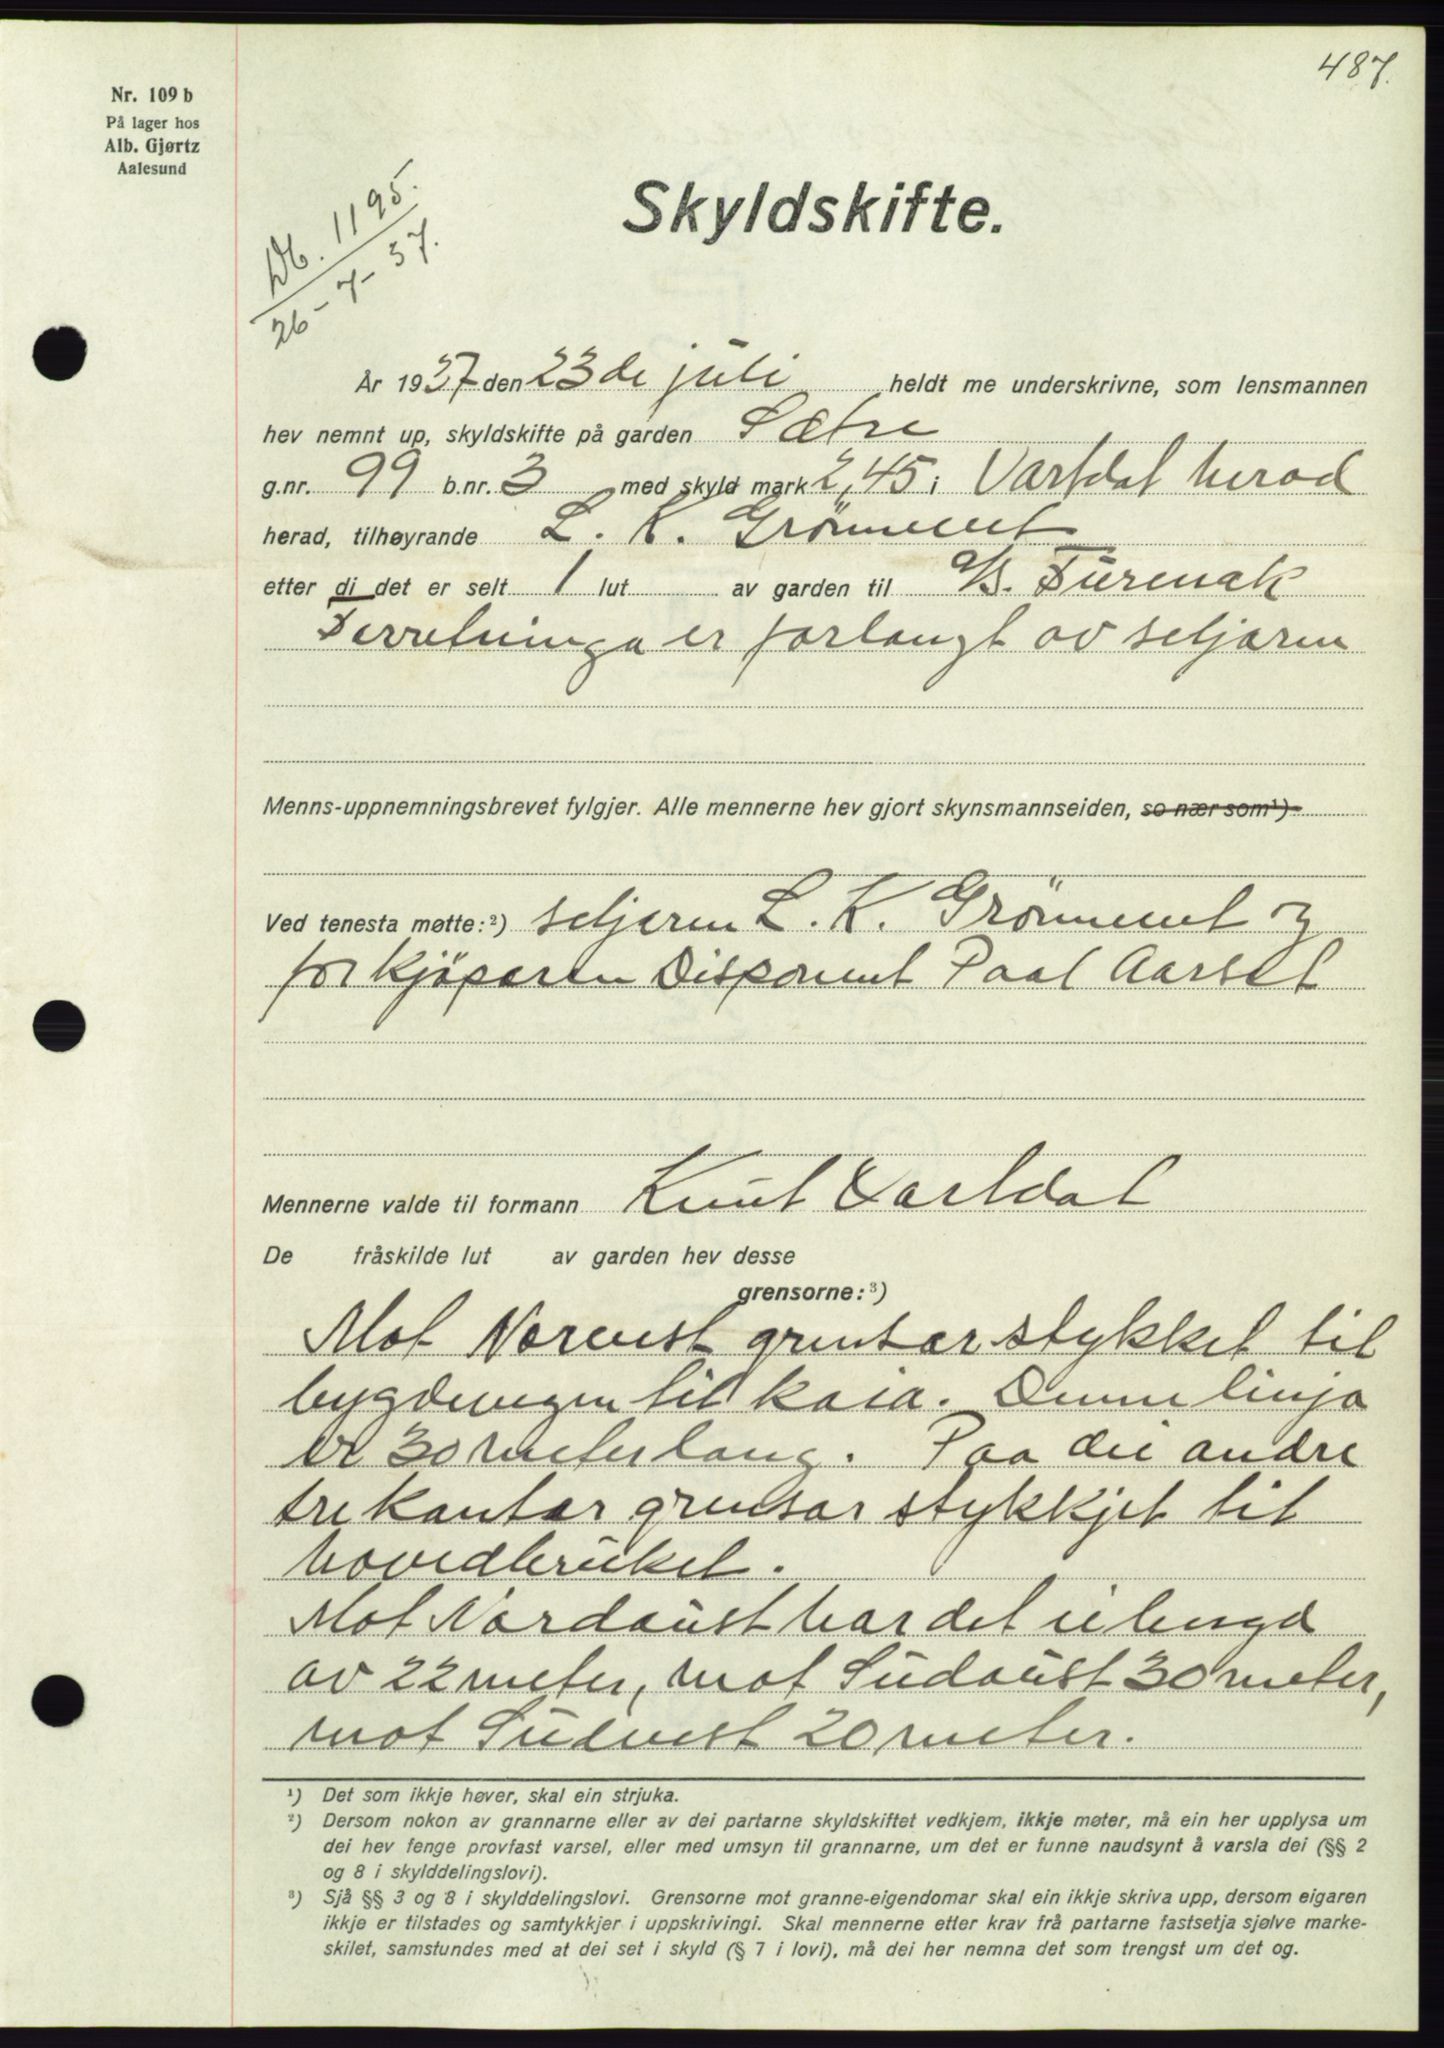 487.
Nr. 109 b
På lager hos
Alb. Gjørtz
Aalesund
Db. 1195.
26-7-37.
Skyldskifte.
År 1937 den 23de juli heldt me underskrivne, som lensmannen
hev nemnt up, skyldskifte på garden Sætre
g.nr. 99 b.nr. 3 med skyld mark 2,45 i Vartdal herad
herad, tilhøyrande L. K. Grönnevet
etter di det er selt 1 lut av garden til A/S. Furenak
Forretninga er forlangt av seljaren
Menns-uppnemningsbrevet fylgjer. Alle mennerne hev gjort skynsmannseiden, so nær som¹)
Ved tenesta møtte:²) seljaren L. K. Grönnevet og
for kjöparen Disponent Paal Aarset
Mennerne valde til formann Knut Vartdal
De fråskilde lut av garden hev desse
grensorne:³)
Mot Norvest grensar stykket til
bygdevegen til kaia. Denne linja
er 30 meter lang. Paa dei andre
tre kantar grensar stykkjet til
hovedbruket.
Mot Nordaust har det ei lengd
av 22 meter, mot Sudaust 30 meter,
mot Sudvest 20 meter.
¹) Det som ikkje høver, skal ein strjuka.
²) Dersom nokon av grannarne eller av dei partarne skyldskiftet vedkjem, ikkje møter, må ein her upplysa um
dei hev fenge provfast varsel, eller med umsyn til grannarne, um det er funne naudsynt å varsla dei (§§ 2
og 8 i skylddelingslovi).
³) Sjå §§ 3 og 8 i skylddelingslovi. Grensorne mot granne-eigendomar skal ein ikkje skriva upp, dersom eigaren
ikkje er tilstades og samtykkjer i uppskrivingi. Skal mennerne etter krav frå partarne fastsetja sjølve marke-
skilet, samstundes med at dei set i skyld (§ 7 i lovi), må dei her nemna det som trengst um det og.